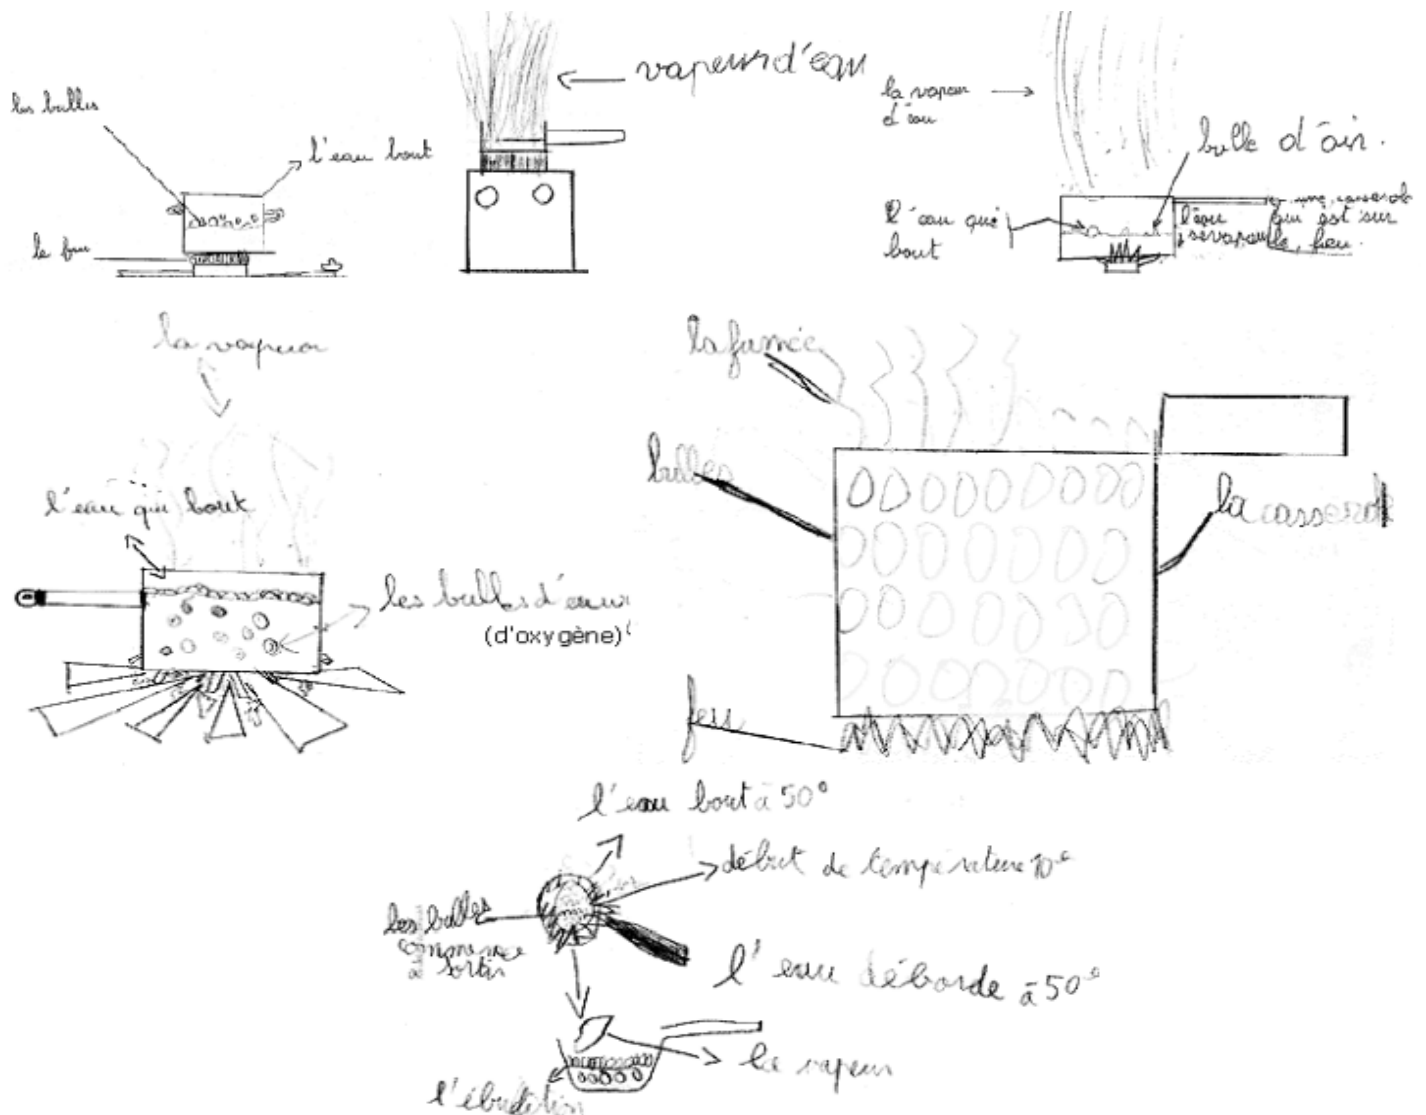 les bulles
l'eau bout
le feu
vapeur d'eau
la vapeur
d'eau
bulle d'air.
l'eau qui
bout
une casserole
l'eau qui est sur
s'évapore le feu.
la vapeur
l'eau qui bout
les bulles d'eau
(d'oxygène)
la fumée
bulles
la casserole
feu
l'eau bout à 50°
début de température 10°
les bulles
commence
à sortir
l'eau déborde à 50°
la vapeur
l'ébullition